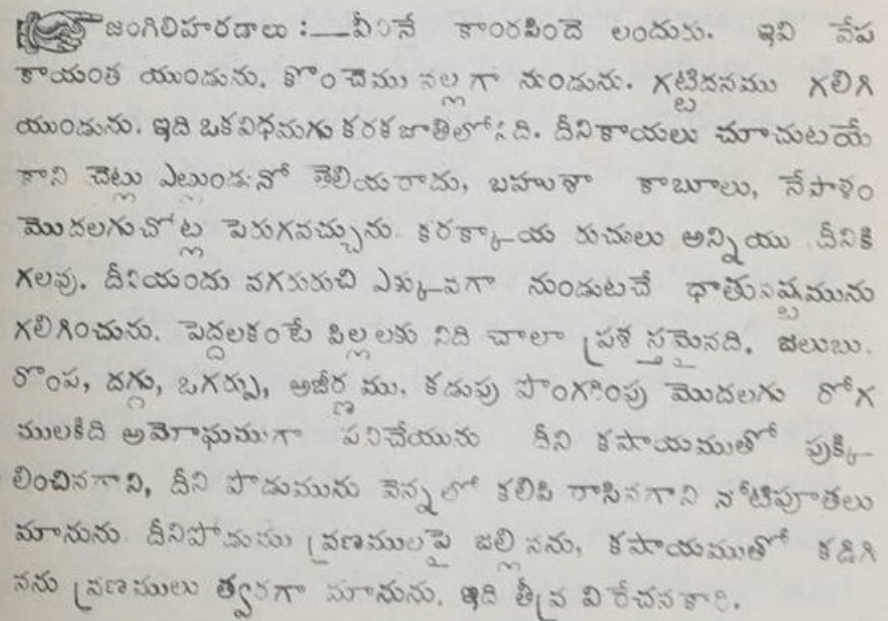 జంగిలిహరడాలు :—వీనినే కాంరపిందె లందురు. ఇవి వేప
కాయంత యుండును. కొంచెము నల్లగా నుండును. గట్టిదనము గలిగి
యుండును. ఇది ఒకవిధమగు కరకజాతిలోనిది. దీనికాయలు చూచుటయే
కాని చెట్లు ఎట్లుండునో తెలియరాదు, బహుశా కాబూలు, నేపాళం
మొదలగుచోట్ల పెరుగవచ్చును. కరక్కాయ రుచులు అన్నియు దీనికి
గలవు. దీనియందు వగరురుచి ఎక్కువగా నుండుటచే ధాతునష్టమును
గలిగించును. పెద్దలకంటే పిల్లలకు నిది చాలా ప్రశస్తమైనది. జలుబు.
రొంప, దగ్గు, ఒగర్పు, అజీర్ణము. కడుపు పొంగరింపు మొదలగు రోగ
ములకిది అమోఘముగా పనిచేయును దీని కషాయముతో పుక్కి
లించినగాని, దీని పొడుమును వెన్నలో కలిపి రాసినగాని నోటిపూతలు
మానును. దీనిపోడుము వ్రణములపై జల్లినను, కషాయముతో కడిగి
నను వ్రణములు త్వరగా మానును. ఇది తీవ్ర విరేచనకారి.